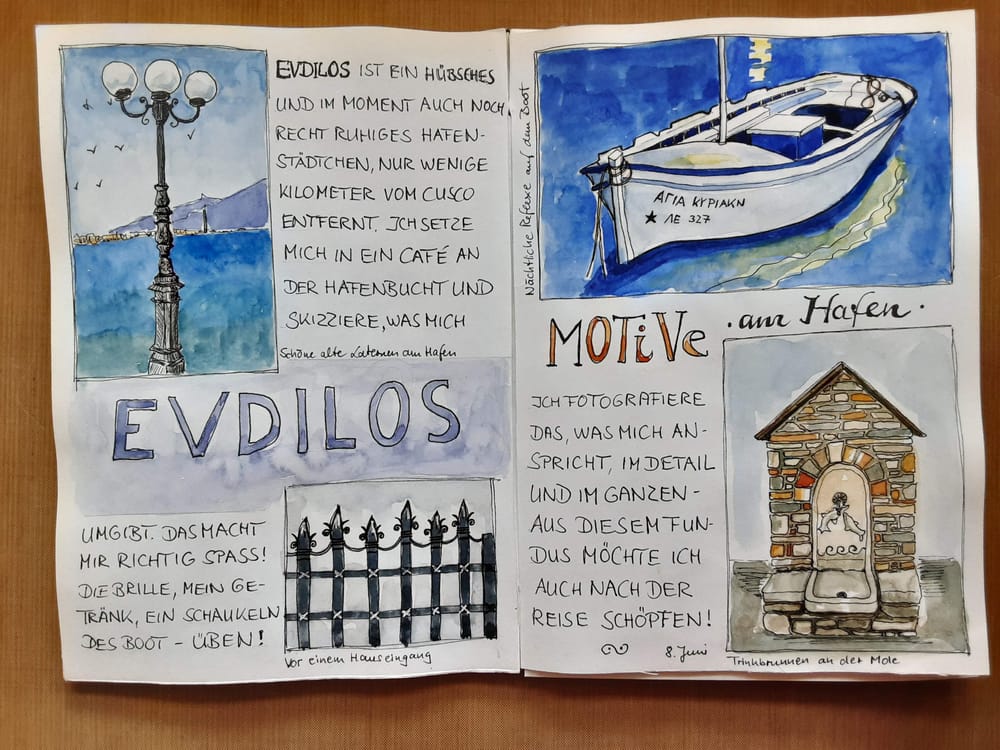 EVDILOS IST EIN HÜBSCHES
UND IM MOMENT AUCH NOCH
RECHT RUHIGES HAFEN-
STÄDTCHEN, NUR WENIGE
KILOMETER VOM CUSCO
ENTFERNT. ICH SETZE
MICH IN EIN CAFÉ AN
DER HAFENBUCHT UND
SKIZZIERE, WAS MICH
Schöne alte Laternen am Hafen
EVDILOS
UMGIBT. DAS MACHT
MIR RICHTIG SPASS!
DIE BRILLE, MEIN GE-
TRÄNK, EIN SCHAUKELN
DES BOOT - ÜBEN!
Vor einem Hauseingang
Nächtliche Reflexe auf dem Boot
ΑΓΙΑ ΚΥΡΙΑΚΗ
★ ΛΕ 327
MOTIVE · am Hafen ·
ICH FOTOGRAFIERE
DAS, WAS MICH AN-
SPRICHT, IM DETAIL
UND IM GANZEN -
AUS DIESEM FUN-
DUS MÖCHTE ICH
AUCH NACH DER
REISE SCHÖPFEN!
8. Juni
Trinkbrunnen an der Mole